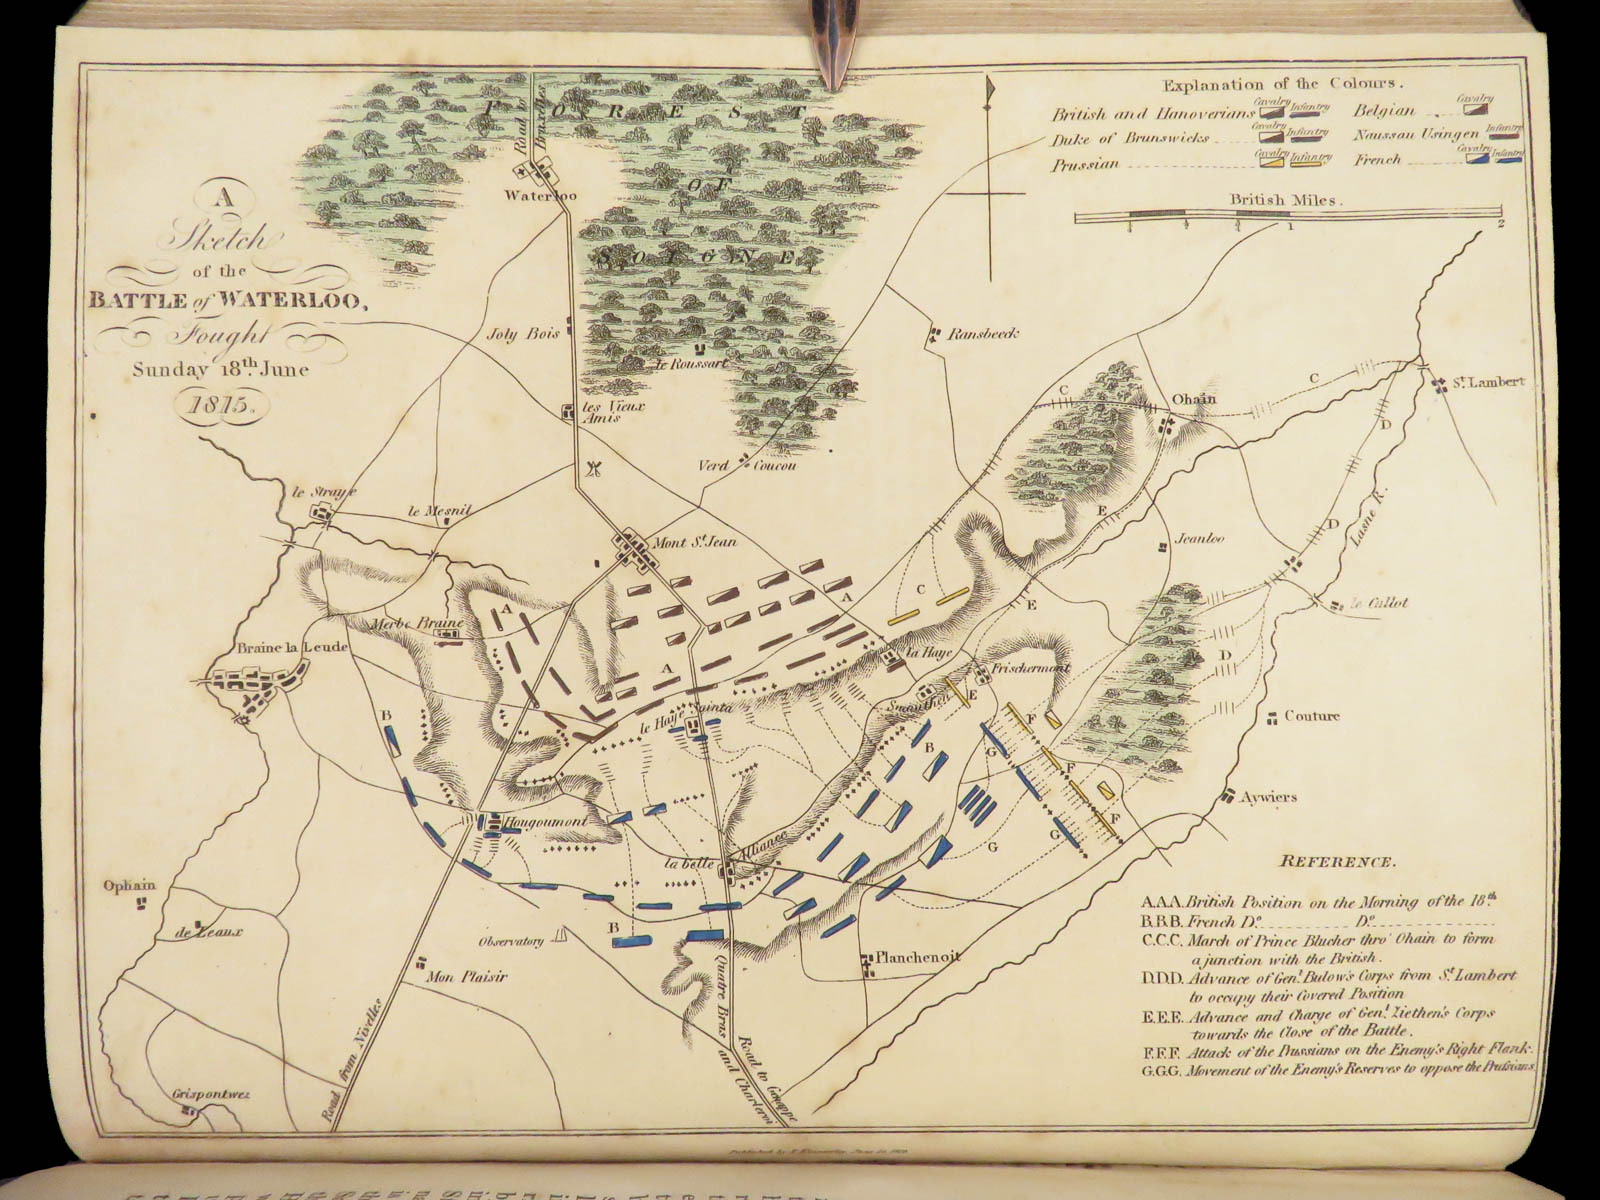 A
Sketch
of the
BATTLE of WATERLOO,
Fought
Sunday 18th. June
1815.
Explanation of the Colours.
British and Hanoverians Cavalry Infantry
Duke of Brunswicks Cavalry Infantry
Prussian Cavalry Infantry
Belgian Cavalry
Naussau Usingen Infantry
French Cavalry Infantry
British Miles.
1 2
FOREST
OF
SOYGNE
Road to
Bruxelles
Waterloo
Joly Bois
le Roussart
Ransbeeck
les Vieux
Amis
Verd Coucou
C
Ohain
C
St. Lambert
D
le Straye
le Mesnil
Mont St. Jean
E
D
Lasne R.
Jeanloo
A
A
C
E
le Callot
Merbe Braine
Braine la Leude
A
la Haye
Frischermont
D
Smouthen
E
le Haye Sainta
B
F
B
G
Couture
F
G
Aywiers
Hougoumont
F
G
G
la belle Alliance
Ophain
de Leaux
B
Observatory
Planchenoit
Mon Plaisir
Road from Nivelles
Quatre Bras and Charleroi
Road to Genappe
Grispontwez
REFERENCE.
A.A.A. British Position on the Morning of the 18th.
B.B.B. French Do. Do.
C.C.C. March of Prince Blucher thro' Ohain to form
a junction with the British.
D.D.D. Advance of Genl. Bulow's Corps from St. Lambert
to occupy their Covered Position
E.E.E. Advance and Charge of Genl. Ziethen's Corps
towards the Close of the Battle.
F.F.F. Attack of the Prussians on the Enemy's Right Flank.
G.G.G. Movement of the Enemy's Reserves to oppose the Prussians.